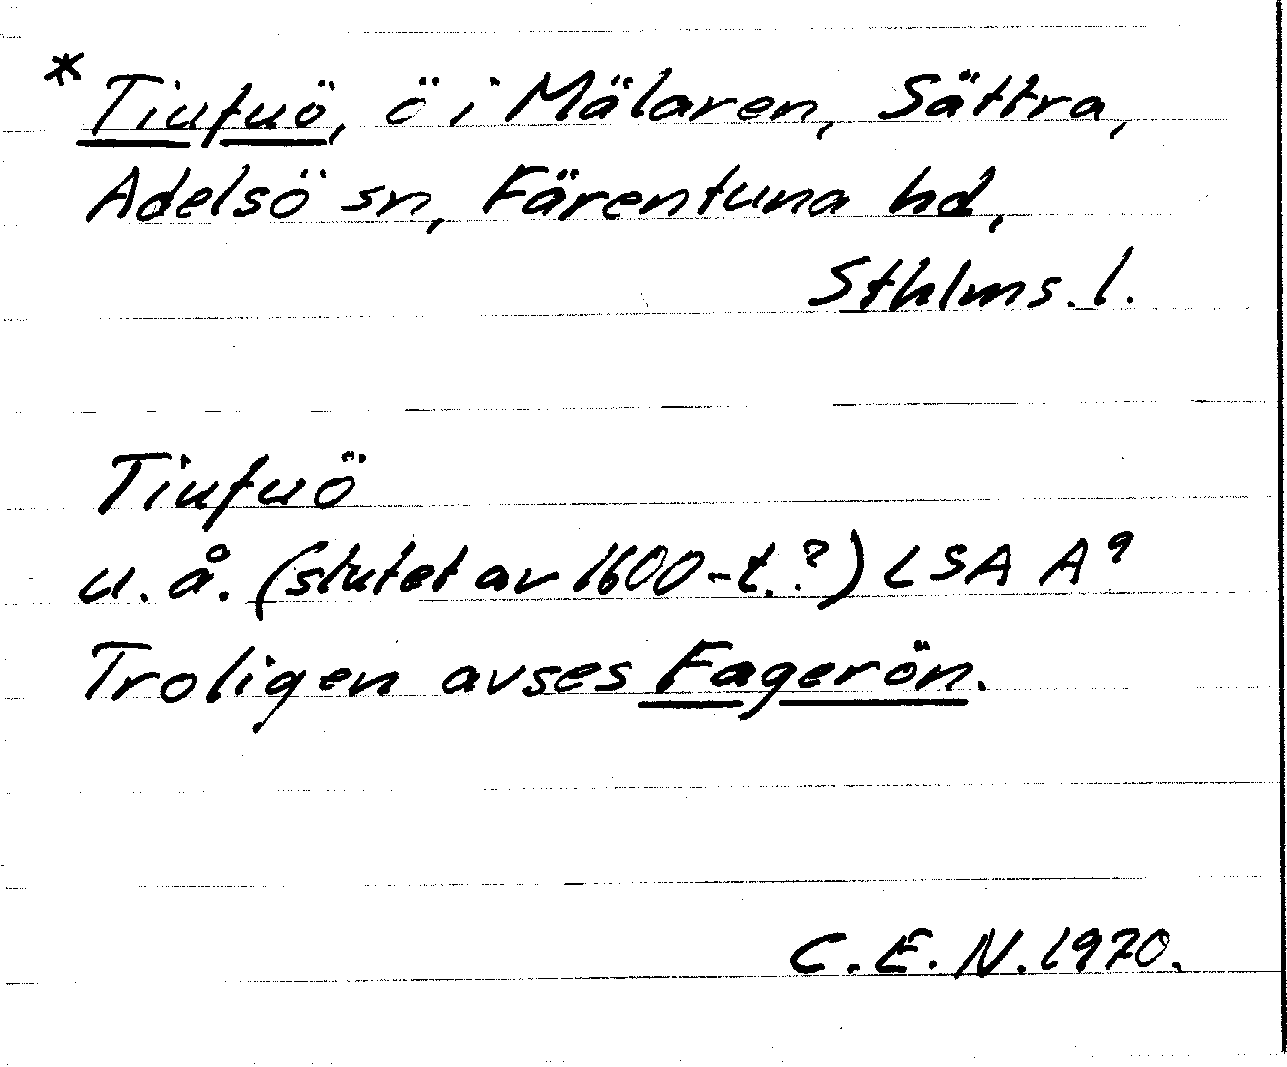 * Tiufuö, ö i Mälaren, Sättra,
Adelsö sn, Färentuna hd,
Sthlms. l.
Tiufuö
u. å. (slutet av 1600-t.?) LSA A⁹
Troligen avses Fagerön.
C. E. N. 1970.